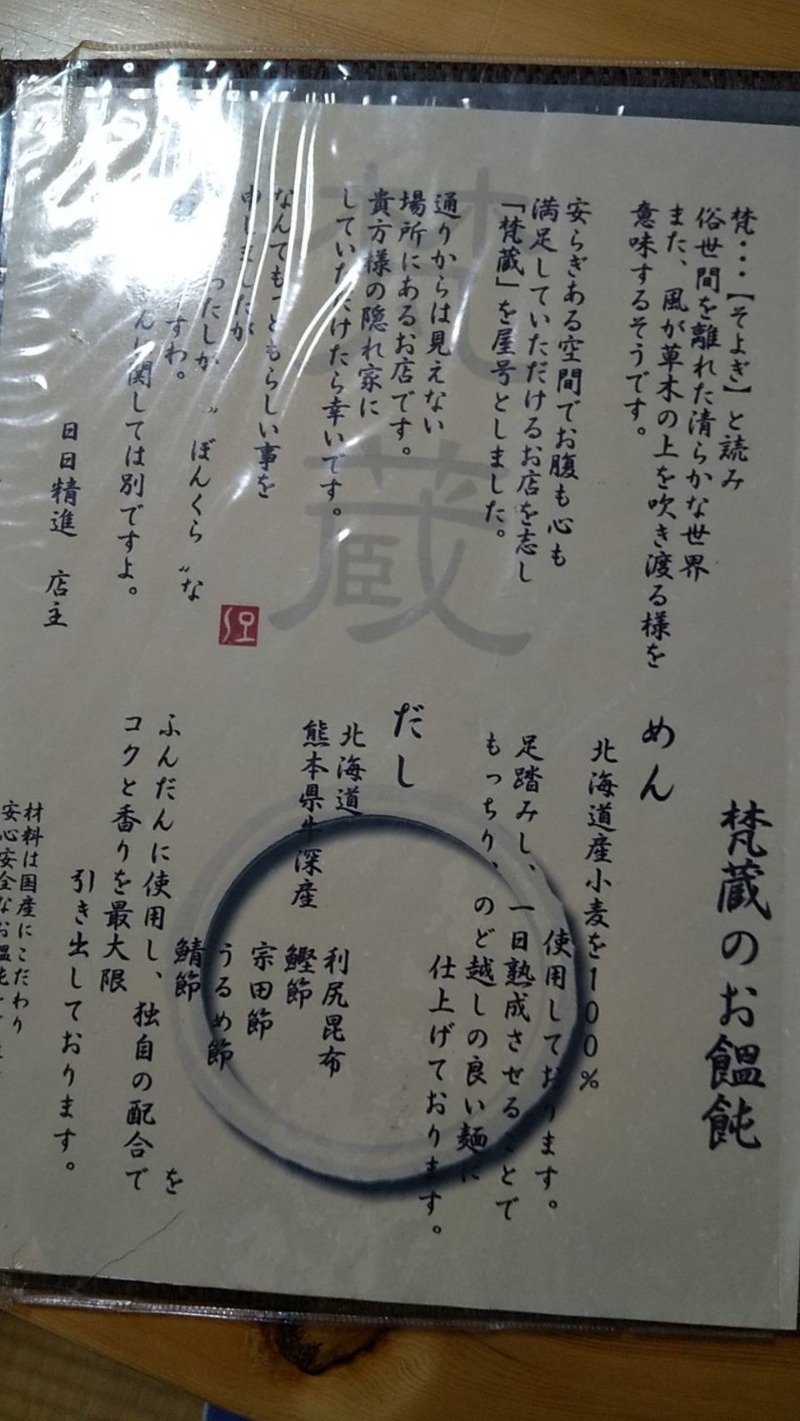 梵・・・【そよぎ】と読み
俗世間を離れた清らかな世界
また、風が草木の上を吹き渡る様を
意味するそうです。
安らぎある空間でお腹も心も
満足していただけるお店を志し
「梵蔵」を屋号としました。
通りからは見えない
場所にあるお店です。
貴方様の隠れ家に
していただけたら幸いです。
なんてもっともらしい事を
申しましたが
わたしが〝ぼんくら〟な
すわ。
関しては別ですよ。
日日精進 店主
梵蔵
梵蔵のお饂飩
めん
北海道産小麦を100%
使用しております。
足踏みし、一日熟成させることで
もっちり、のど越しの良い麺に
仕上げております。
だし
北海道 利尻昆布
熊本県牛深産 鰹節
宗田節
うるめ節
鯖節 を
ふんだんに使用し、独自の配合で
コクと香りを最大限
引き出しております。
材料は国産にこだわり
安心安全なお饂飩